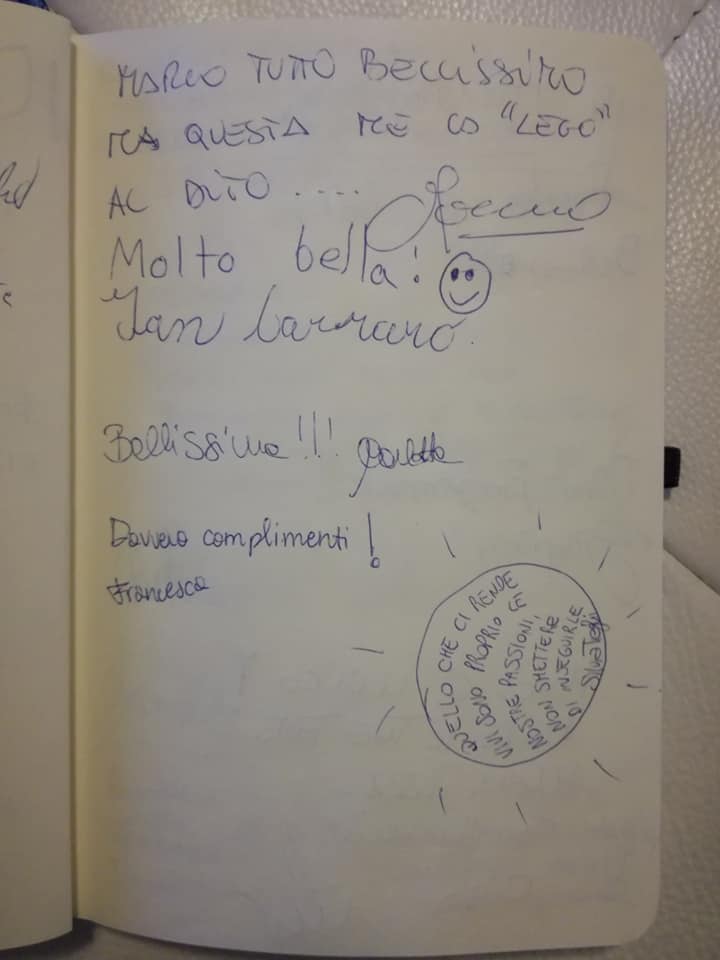 MARCO TUTTO BELLISSIMO
MA QUESTA ME LO "LEGO"
AL DITO ....
Molto bella!
Ian Carraro.
Bellissima!!!
Davvero complimenti!
Francesca
QUELLO CHE CI RENDE
VIVI SONO PROPRIO LE
NOSTRE PASSIONI,
NON SMETTERE
DI INSEGUIRLE